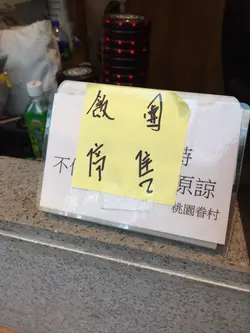 飯團
停售
不
待
原諒
桃園眷村